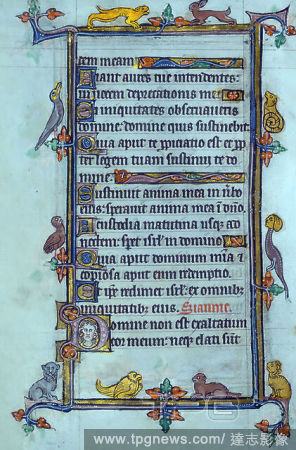 tem meam
Fiant aures tue intendentes:
in vocem deprecationis mee
Si iniquitates observaveris
domine: domine quis sustinebit
Quia aput te propiciatio est et pp
ter legem tuam sustinui te do
mine
Sustinuit anima mea in vbo
eius: speravit anima mea i dno.
A custodia matutina usq; ad
noctem: speret isrl in domino
Quia aput dominum mia et
copiosa aput eum redemptio.
Et ipse redimet isrl: ex omnibz
iniquitatibz eius. Gloria
Domine non est exaltatum
cor meum: neqz elati sunt
www.tpgnews.com / 達志影像